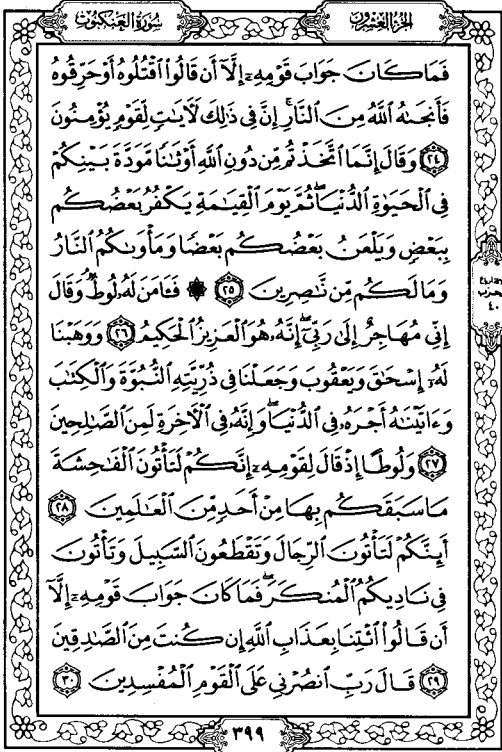 سورة العنكبوت
الجزء العشرون
فَمَا كَانَ جَوَابَ قَوْمِهِۦٓ إِلَّآ أَن قَالُوا۟ ٱقْتُلُوهُ أَوْ حَرِّقُوهُ
فَأَنجَىٰهُ ٱللَّهُ مِنَ ٱلنَّارِ ۚ إِنَّ فِى ذَٰلِكَ لَءَايَٰتٍ لِّقَوْمٍ يُؤْمِنُونَ
٢٤ وَقَالَ إِنَّمَا ٱتَّخَذْتُم مِّن دُونِ ٱللَّهِ أَوْثَٰنًا مَّوَدَّةَ بَيْنِكُمْ
فِى ٱلْحَيَوٰةِ ٱلدُّنْيَا ۖ ثُمَّ يَوْمَ ٱلْقِيَٰمَةِ يَكْفُرُ بَعْضُكُم
بِبَعْضٍ وَيَلْعَنُ بَعْضُكُم بَعْضًا وَمَأْوَىٰكُمُ ٱلنَّارُ
وَمَا لَكُم مِّن نَّٰصِرِينَ ٢٥ ۞ فَـَٔامَنَ لَهُۥ لُوطٌ ۘ وَقَالَ
إِنِّى مُهَاجِرٌ إِلَىٰ رَبِّىٓ ۖ إِنَّهُۥ هُوَ ٱلْعَزِيزُ ٱلْحَكِيمُ ٢٦ وَوَهَبْنَا
لَهُۥٓ إِسْحَٰقَ وَيَعْقُوبَ وَجَعَلْنَا فِى ذُرِّيَّتِهِ ٱلنُّبُوَّةَ وَٱلْكِتَٰبَ
وَءَاتَيْنَٰهُ أَجْرَهُۥ فِى ٱلدُّنْيَا ۖ وَإِنَّهُۥ فِى ٱلْءَاخِرَةِ لَمِنَ ٱلصَّٰلِحِينَ
٢٧ وَلُوطًا إِذْ قَالَ لِقَوْمِهِۦٓ إِنَّكُمْ لَتَأْتُونَ ٱلْفَٰحِشَةَ
مَا سَبَقَكُم بِهَا مِنْ أَحَدٍ مِّنَ ٱلْعَٰلَمِينَ ٢٨
أَئِنَّكُمْ لَتَأْتُونَ ٱلرِّجَالَ وَتَقْطَعُونَ ٱلسَّبِيلَ وَتَأْتُونَ
فِى نَادِيكُمُ ٱلْمُنكَرَ ۖ فَمَا كَانَ جَوَابَ قَوْمِهِۦٓ إِلَّآ
أَن قَالُوا۟ ٱئْتِنَا بِعَذَابِ ٱللَّهِ إِن كُنتَ مِنَ ٱلصَّٰدِقِينَ
٢٩ قَالَ رَبِّ ٱنصُرْنِى عَلَى ٱلْقَوْمِ ٱلْمُفْسِدِينَ ٣٠
حزب
٤٠
٣٩٩